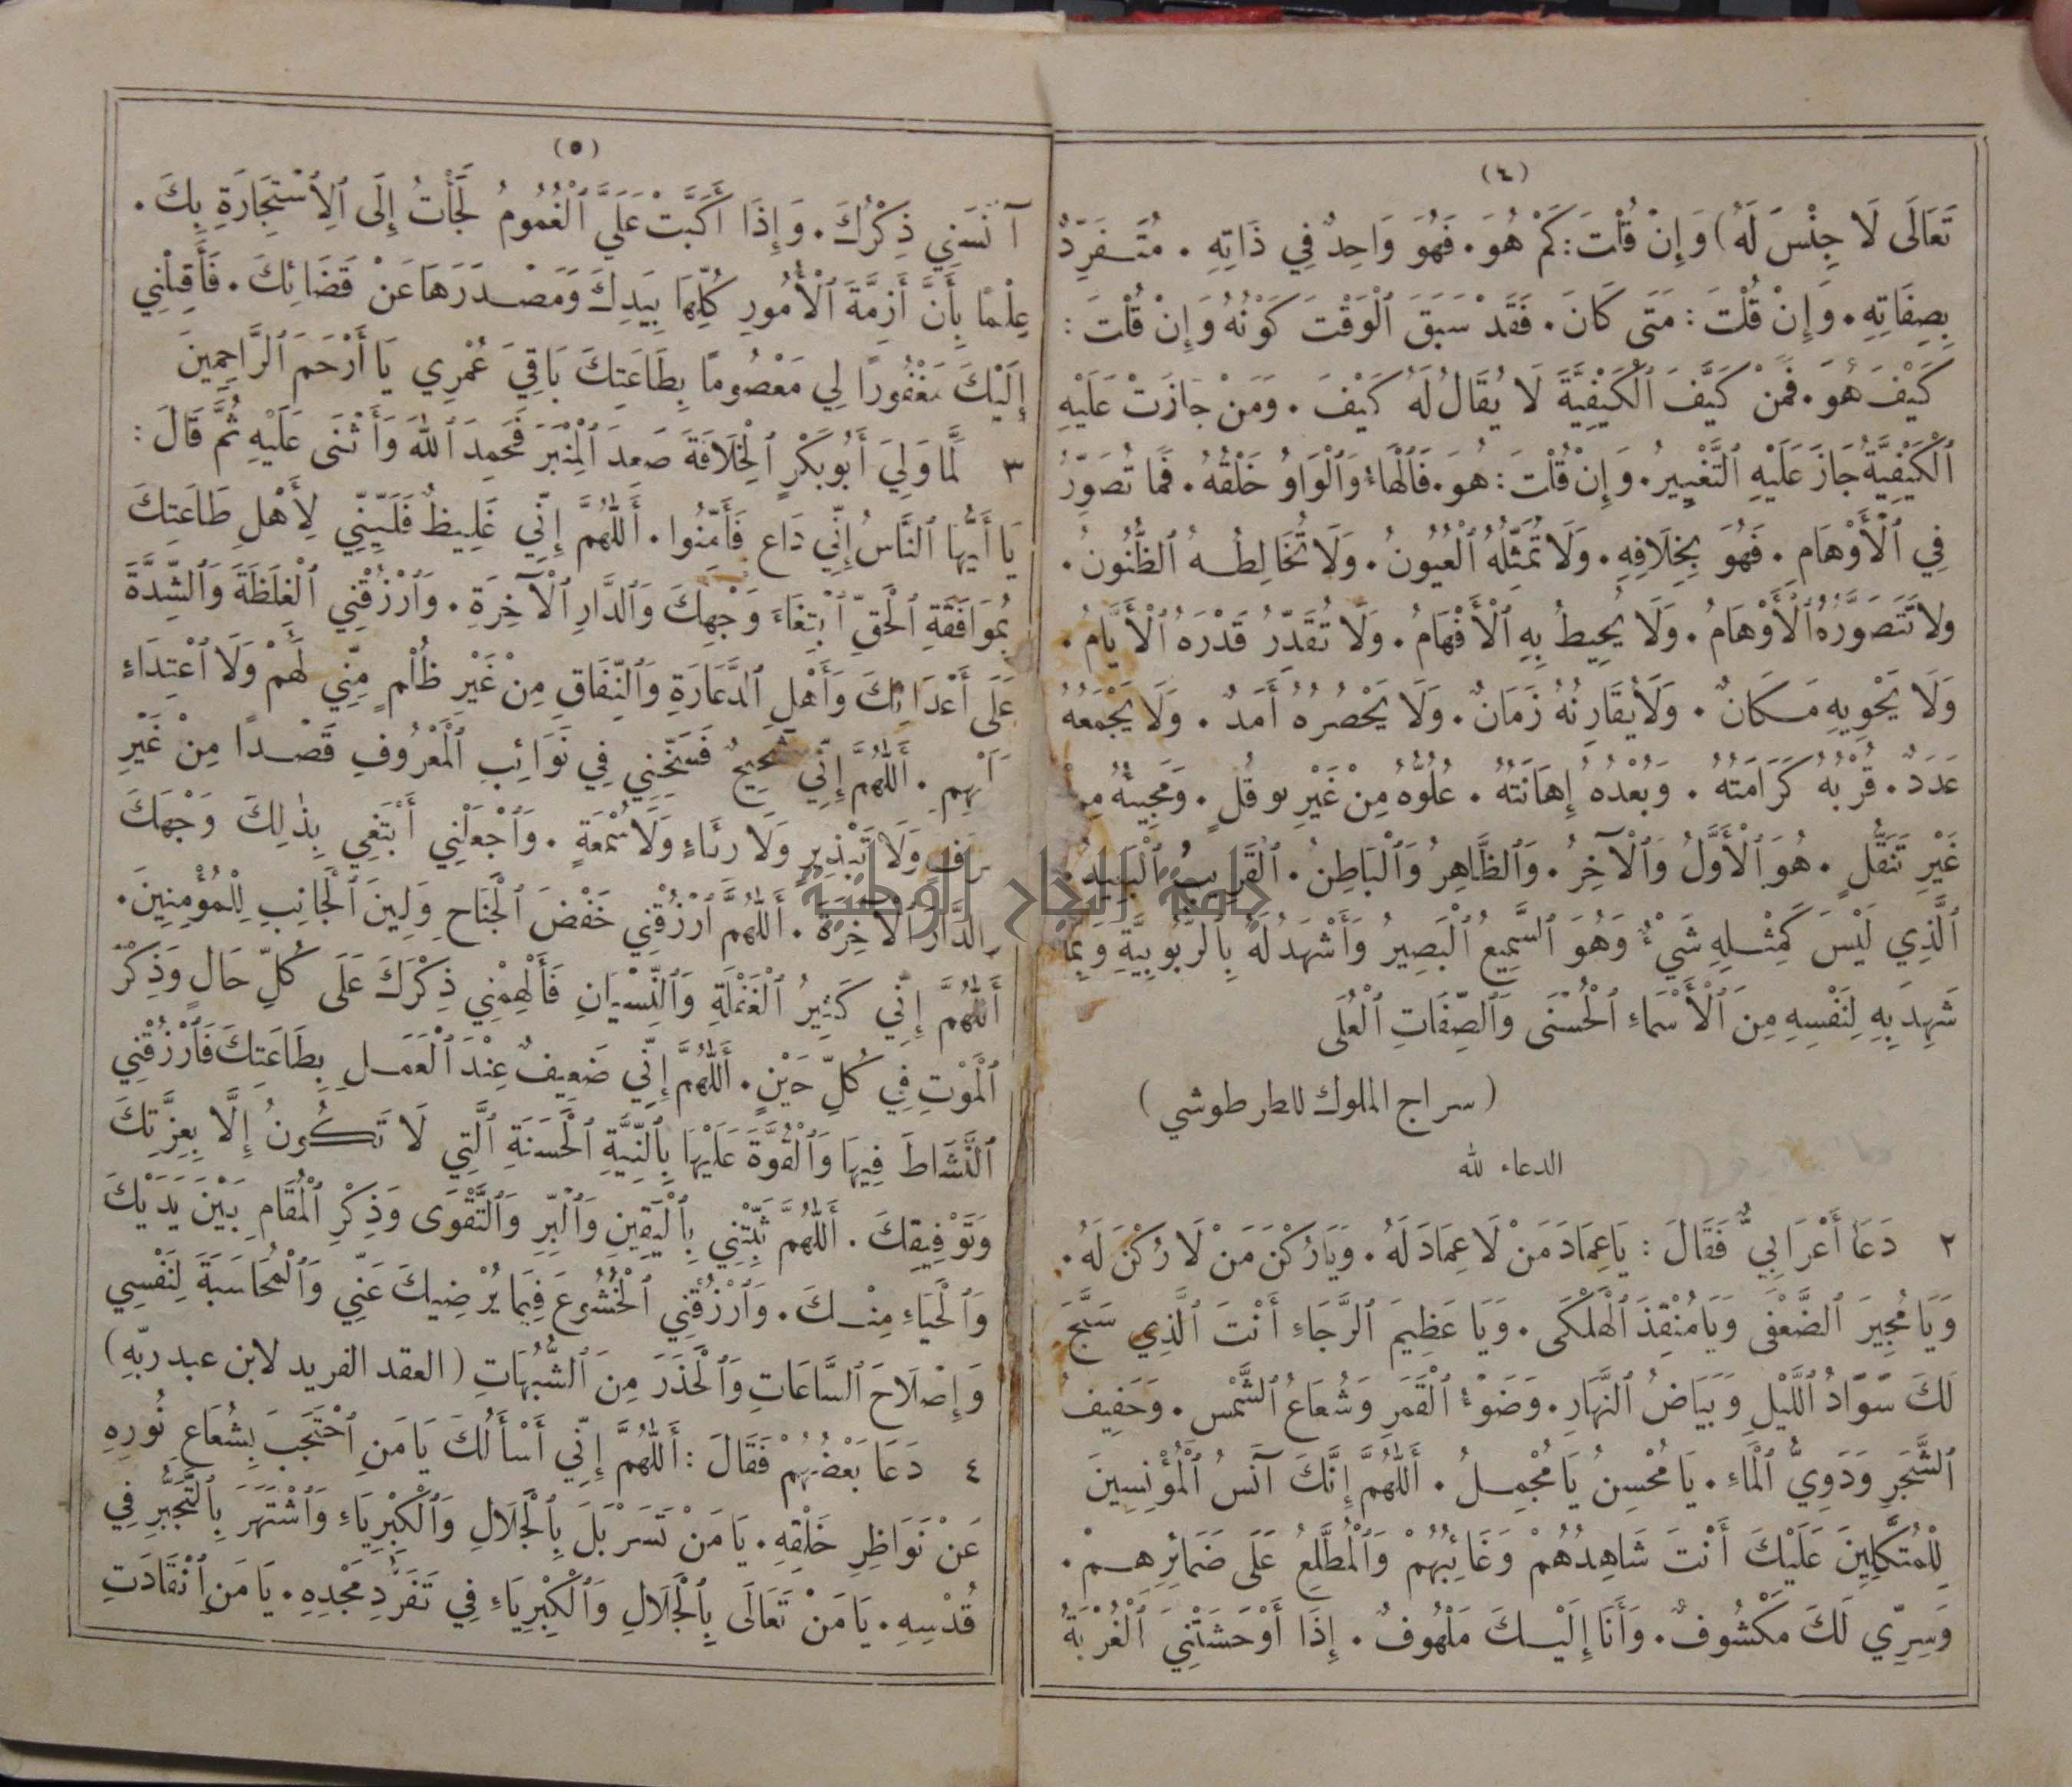 (٤)
تَعَالَى لَا جِنْسَ لَهُ) وَإِنْ قُلْتَ: كَمْ هُوَ. فَهُوَ وَاحِدٌ فِي ذَاتِهِ. مُتَفَرِّدٌ
بِصِفَاتِهِ. وَإِنْ قُلْتَ: مَتَى كَانَ. فَقَدْ سَبَقَ ٱلْوَقْتَ كَوْنُهُ وَإِنْ قُلْتَ:
كَيْفَ هُوَ. فَمَنْ كَيَّفَ ٱلْكَيْفِيَّةَ لَا يُقَالُ لَهُ كَيْفَ. وَمَنْ جَازَتْ عَلَيْهِ
ٱلْكَيْفِيَّةُ جَازَ عَلَيْهِ ٱلتَّغْيِيرُ. وَإِنْ قُلْتَ: هُوَ. فَٱلْهَاءُ وَٱلْوَاوُ خَلْقُهُ. فَمَا تُصَوِّرُ
فِي ٱلْأَوْهَامِ. فَهُوَ بِخِلَافِهِ. وَلَا تُمَثِّلُهُ ٱلْعُيُونُ. وَلَا تُخَالِطُهُ ٱلظُّنُونُ.
وَلَا تَتَصَوَّرُهُ ٱلْأَوْهَامُ. وَلَا يُحِيطُ بِهِ ٱلْأَفْهَامُ. وَلَا تُقَدِّرُ قَدْرَهُ ٱلْأَيَّامُ.
وَلَا يَحْوِيهِ مَكَانٌ. وَلَا يُقَارِنُهُ زَمَانٌ. وَلَا يَحْصُرُهُ أَمَدٌ. وَلَا يَجْمَعُهُ
عَدَدٌ. قُرْبُهُ كَرَامَتُهُ. وَبُعْدُهُ إِهَانَتُهُ. عُلُوُّهُ مِنْ غَيْرِ تَوَقُّلٍ. وَمَجِيئُهُ مِنْ
غَيْرِ تَنَقُّلٍ. هُوَ ٱلْأَوَّلُ وَٱلْآخِرُ. وَٱلظَّاهِرُ وَٱلْبَاطِنُ. ٱلْقَرِيبُ ٱلْبَعِيدُ.
ٱلَّذِي لَيْسَ كَمِثْلِهِ شَيْءٌ وَهُوَ ٱلسَّمِيعُ ٱلْبَصِيرُ وَأَشْهَدُ لَهُ بِٱلرُّبُوبِيَّةِ وَبِمَا
شَهِدَ بِهِ لِنَفْسِهِ مِنَ ٱلْأَسْمَاءِ ٱلْحُسْنَى وَٱلصِّفَاتِ ٱلْعُلَى
(سراج الملوك للطرطوشي)
الدعاء لله
٢ دَعَا أَعْرَابِيٌّ فَقَالَ: يَا عِمَادَ مَنْ لَا عِمَادَ لَهُ. وَيَا رُكْنَ مَنْ لَا رُكْنَ لَهُ.
وَيَا مُجِيرَ ٱلضَّعْفَى وَيَا مُنْقِذَ ٱلْهَلْكَى. وَيَا عَظِيمَ ٱلرَّجَاءِ أَنْتَ ٱلَّذِي سَبَّحَ
لَكَ سَوَادُ ٱللَّيْلِ وَبَيَاضُ ٱلنَّهَارِ. وَضَوْءُ ٱلْقَمَرِ وَشُعَاعُ ٱلشَّمْسِ. وَحَفِيفُ
ٱلشَّجَرِ وَدَوِيُّ ٱلْمَاءِ. يَا مُحْسِنُ يَا مُجْمِلُ. أَللّٰهُمَّ إِنَّكَ آنَسُ ٱلْمُؤْنِسِينَ
لِلْمُتَّكِلِينَ عَلَيْكَ أَنْتَ شَاهِدُهُمْ وَغَائِبُهُمْ وَٱلْمُطَّلِعُ عَلَى ضَمَائِرِهِمْ.
وَسِرِّي لَكَ مَكْشُوفٌ. وَأَنَا إِلَيْكَ مَلْهُوفٌ. إِذَا أَوْحَشَتْنِيَ ٱلْغُرْبَةُ
(٥)
آنَسَنِي ذِكْرُكَ. وَإِذَا أَكَبَّتْ عَلَيَّ ٱلْغُمُومُ لَجَأْتُ إِلَى ٱلِٱسْتِجَارَةِ بِكَ.
عِلْمًا بِأَنَّ أَزِمَّةَ ٱلْأُمُورِ كُلِّهَا بِيَدِكَ وَمَصْدَرَهَا عَنْ قَضَائِكَ. فَأَقِلْنِي
إِلَيْكَ مَغْفُورًا لِي مَعْصُومًا بِطَاعَتِكَ بَاقِيَ عُمْرِي يَا أَرْحَمَ ٱلرَّاحِمِينَ
٣ لَمَّا وَلِيَ أَبُو بَكْرٍ ٱلْخِلَافَةَ صَعِدَ ٱلْمِنْبَرَ فَحَمِدَ ٱللّٰهَ وَأَثْنَى عَلَيْهِ ثُمَّ قَالَ:
يَا أَيُّهَا ٱلنَّاسُ إِنِّي دَاعٍ فَأَمِّنُوا. أَللّٰهُمَّ إِنِّي غَلِيظٌ فَلَيِّنِّي لِأَهْلِ طَاعَتِكَ
بِمُوَافَقَةِ ٱلْحَقِّ ٱبْتِغَاءَ وَجْهِكَ وَٱلدَّارِ ٱلْآخِرَةِ. وَٱرْزُقْنِي ٱلْغِلْظَةَ وَٱلشِّدَّةَ
عَلَى أَعْدَائِكَ وَأَهْلِ ٱلدَّعَارَةِ وَٱلنِّفَاقِ مِنْ غَيْرِ ظُلْمٍ مِّنِّي لَهُمْ وَلَا ٱعْتِدَاءٍ
عَلَيْهِمْ. أَللّٰهُمَّ إِنِّي شَحِيحٌ فَسَخِّنِي فِي نَوَائِبِ ٱلْمَعْرُوفِ قَصْدًا مِنْ غَيْرِ
سَرَفٍ وَلَا تَبْذِيرٍ وَلَا رِئَاءٍ وَلَا سُمْعَةٍ. وَٱجْعَلْنِي أَبْتَغِي بِذٰلِكَ وَجْهَكَ
وَٱلدَّارَ ٱلْآخِرَةَ. أَللّٰهُمَّ ٱرْزُقْنِي خَفْضَ ٱلْجَنَاحِ وَلِينَ ٱلْجَانِبِ لِلْمُؤْمِنِينَ.
أَللّٰهُمَّ إِنِّي كَثِيرُ ٱلْغَفْلَةِ وَٱلنِّسْيَانِ فَأَلْهِمْنِي ذِكْرَكَ عَلَى كُلِّ حَالٍ وَذِكْرَ
ٱلْمَوْتِ فِي كُلِّ حِيْنٍ. أَللّٰهُمَّ إِنِّي ضَعِيفٌ عِنْدَ ٱلْعَمَلِ بِطَاعَتِكَ فَٱرْزُقْنِي
ٱلنَّشَاطَ فِيهَا وَٱلْقُوَّةَ عَلَيْهَا بِٱلنِّيَّةِ ٱلْحَسَنَةِ ٱلَّتِي لَا تَكُونُ إِلَّا بِعِزَّتِكَ
وَتَوْفِيقِكَ. أَللّٰهُمَّ ثَبِّتْنِي بِٱلْيَقِينِ وَٱلْبِرِّ وَٱلتَّقْوَى وَذِكْرِ ٱلْمَقَامِ بَيْنَ يَدَيْكَ
وَٱلْحَيَاءِ مِنْكَ. وَٱرْزُقْنِي ٱلْخُشُوعَ فِيمَا يُرْضِيكَ عَنِّي وَٱلْمُحَاسَبَةَ لِنَفْسِي
وَإِصْلَاحَ ٱلسَّاعَاتِ وَٱلْحَذَرَ مِنَ ٱلشُّبُهَاتِ (العقد الفريد لابن عبد ربّهِ)
٤ دَعَا بَعْضُهُمْ فَقَالَ: أَللّٰهُمَّ إِنِّي أَسْأَلُكَ يَا مَنِ ٱحْتَجَبَ بِشُعَاعِ نُورِهِ
عَنْ نَوَاظِرِ خَلْقِهِ. يَا مَنْ تَسَرْبَلَ بِٱلْجَلَالِ وَٱلْكِبْرِيَاءِ وَٱشْتَهَرَ بِٱلتَّجَبُّرِ فِي
قُدْسِهِ. يَا مَنْ تَعَالَى بِٱلْجَلَالِ وَٱلْكِبْرِيَاءِ فِي تَفَرُّدِ مَجْدِهِ. يَا مَنِ ٱنْقَادَتِ
جامعة النجاح الوطنية